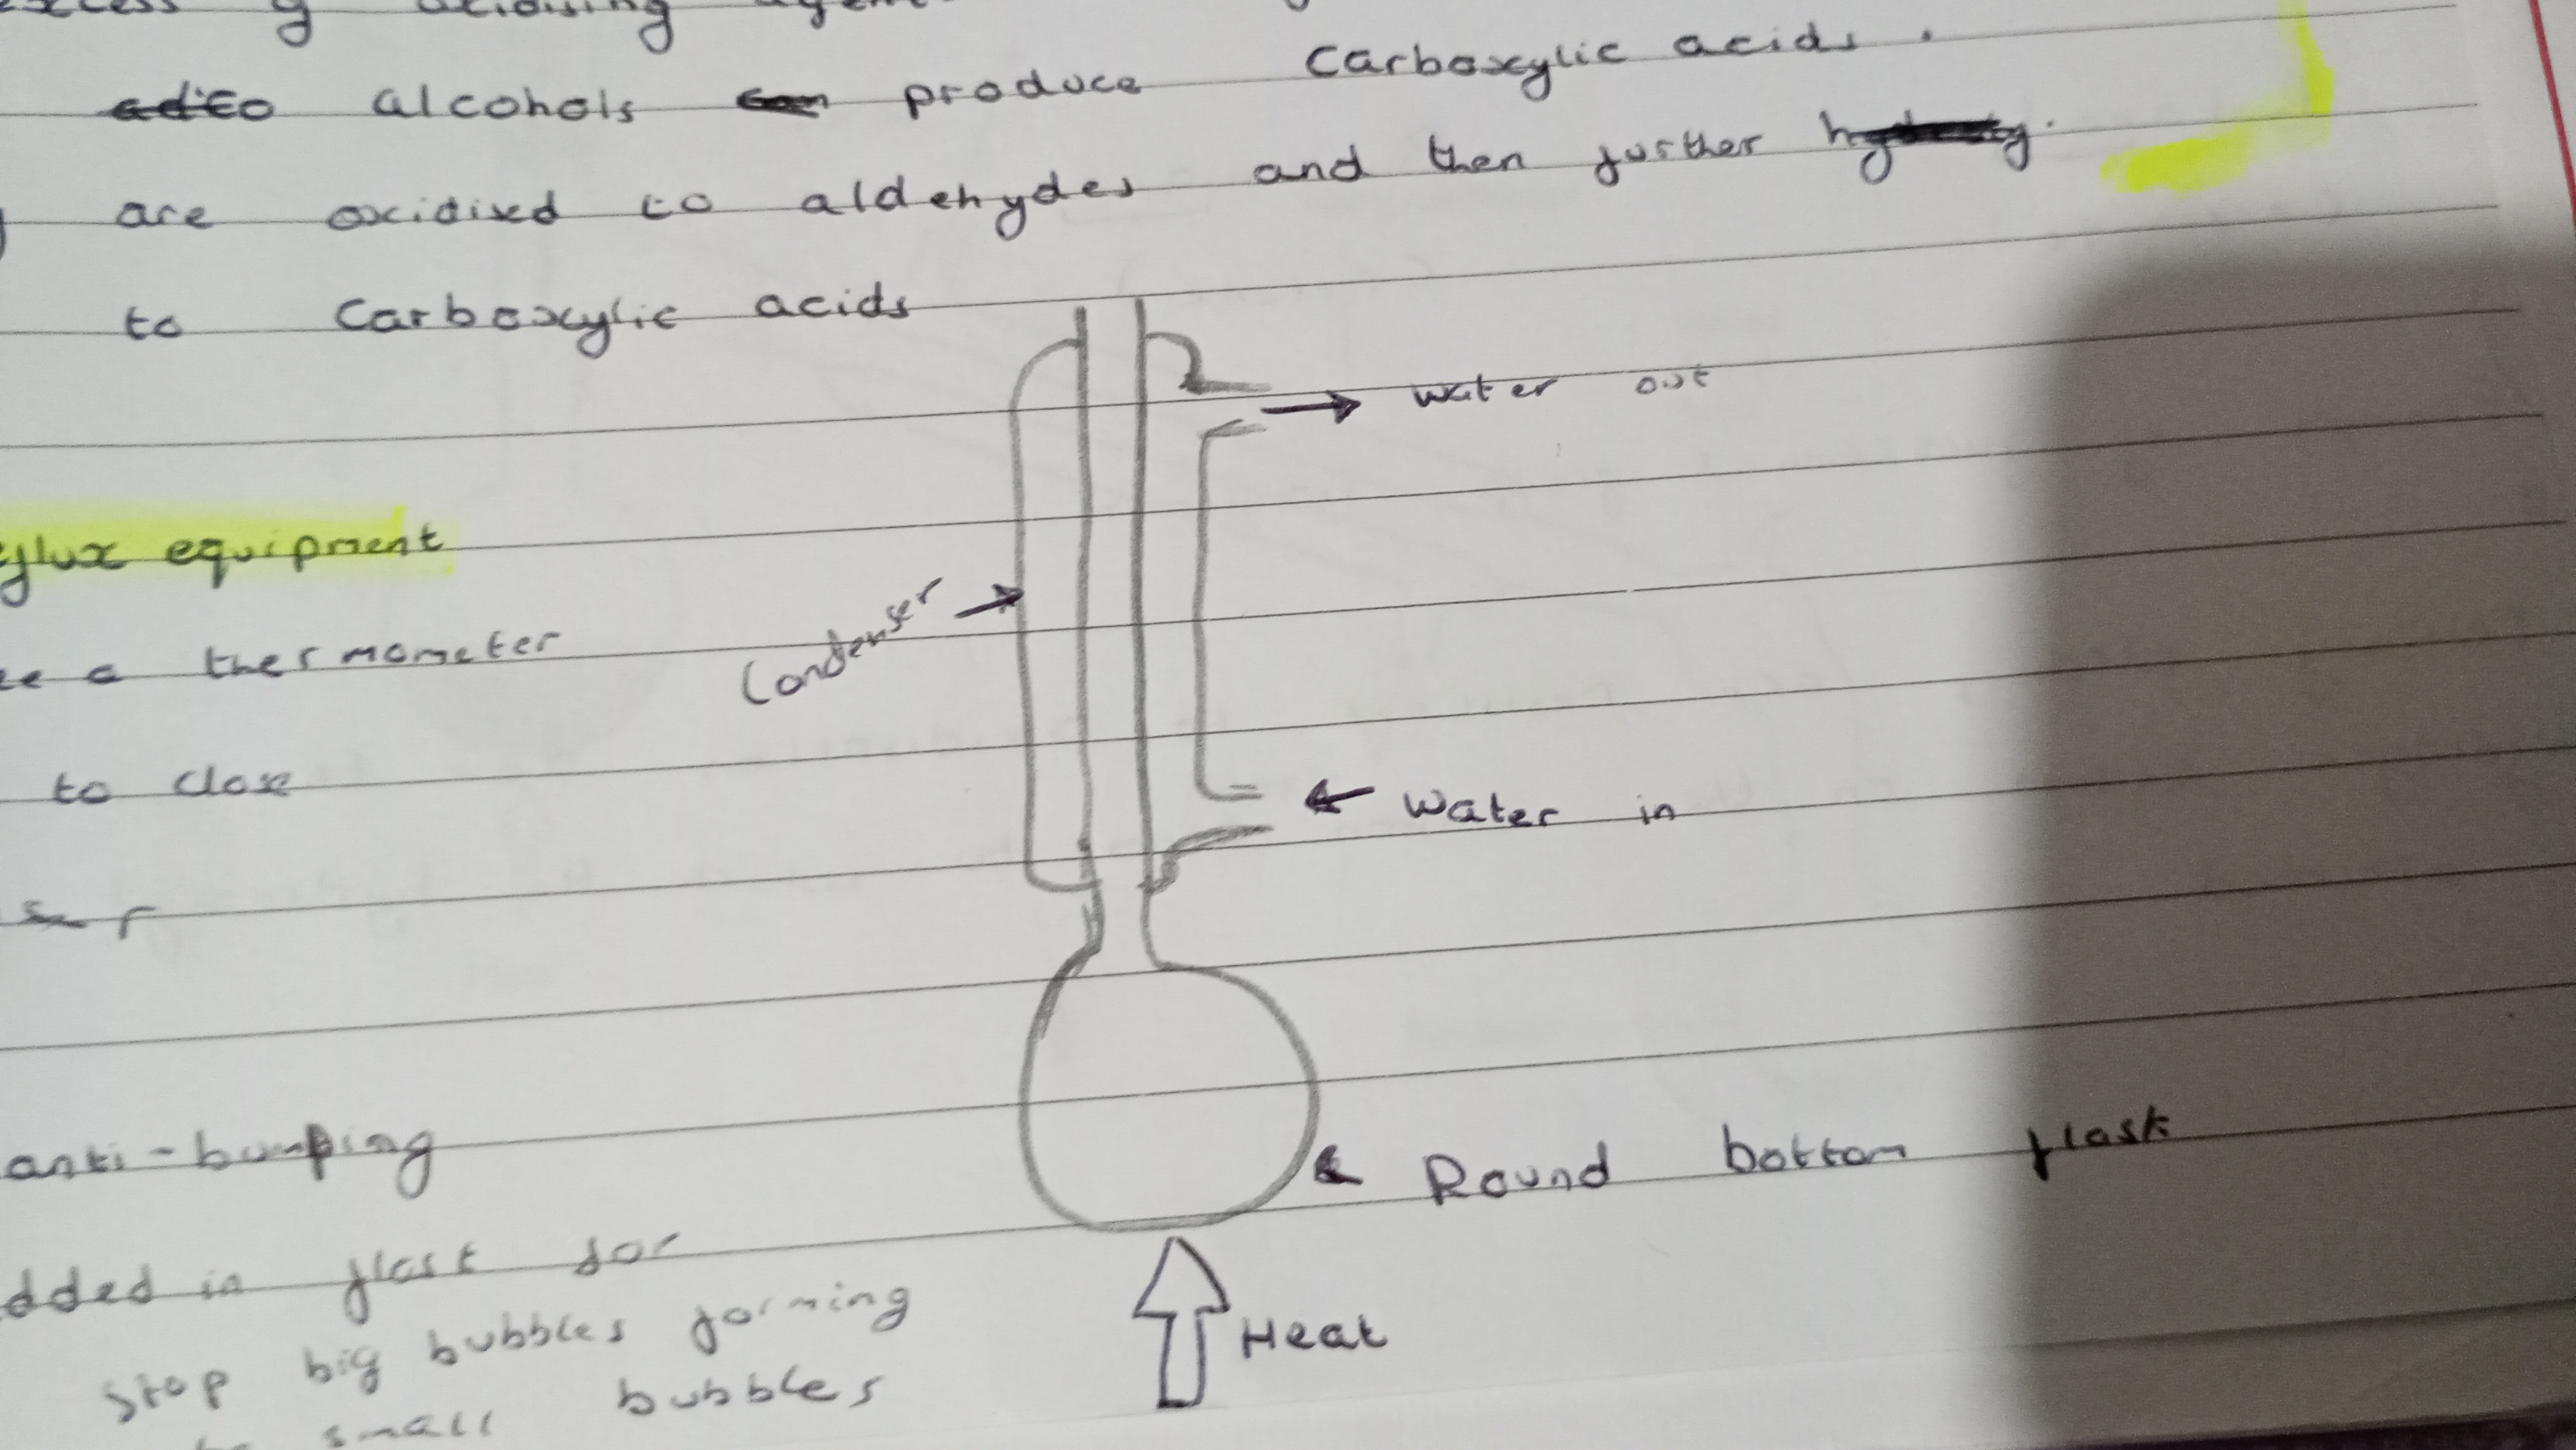 alcohols produce Carboxylic acids.
are oxidised to aldehydes and then further
to Carboxylic acids
water out
equipment
a thermometer
Condenser
to close
Water in
anti-bumping
Round bottom flask
in flask for
Heat
stop big bubbles forming
small bubbles